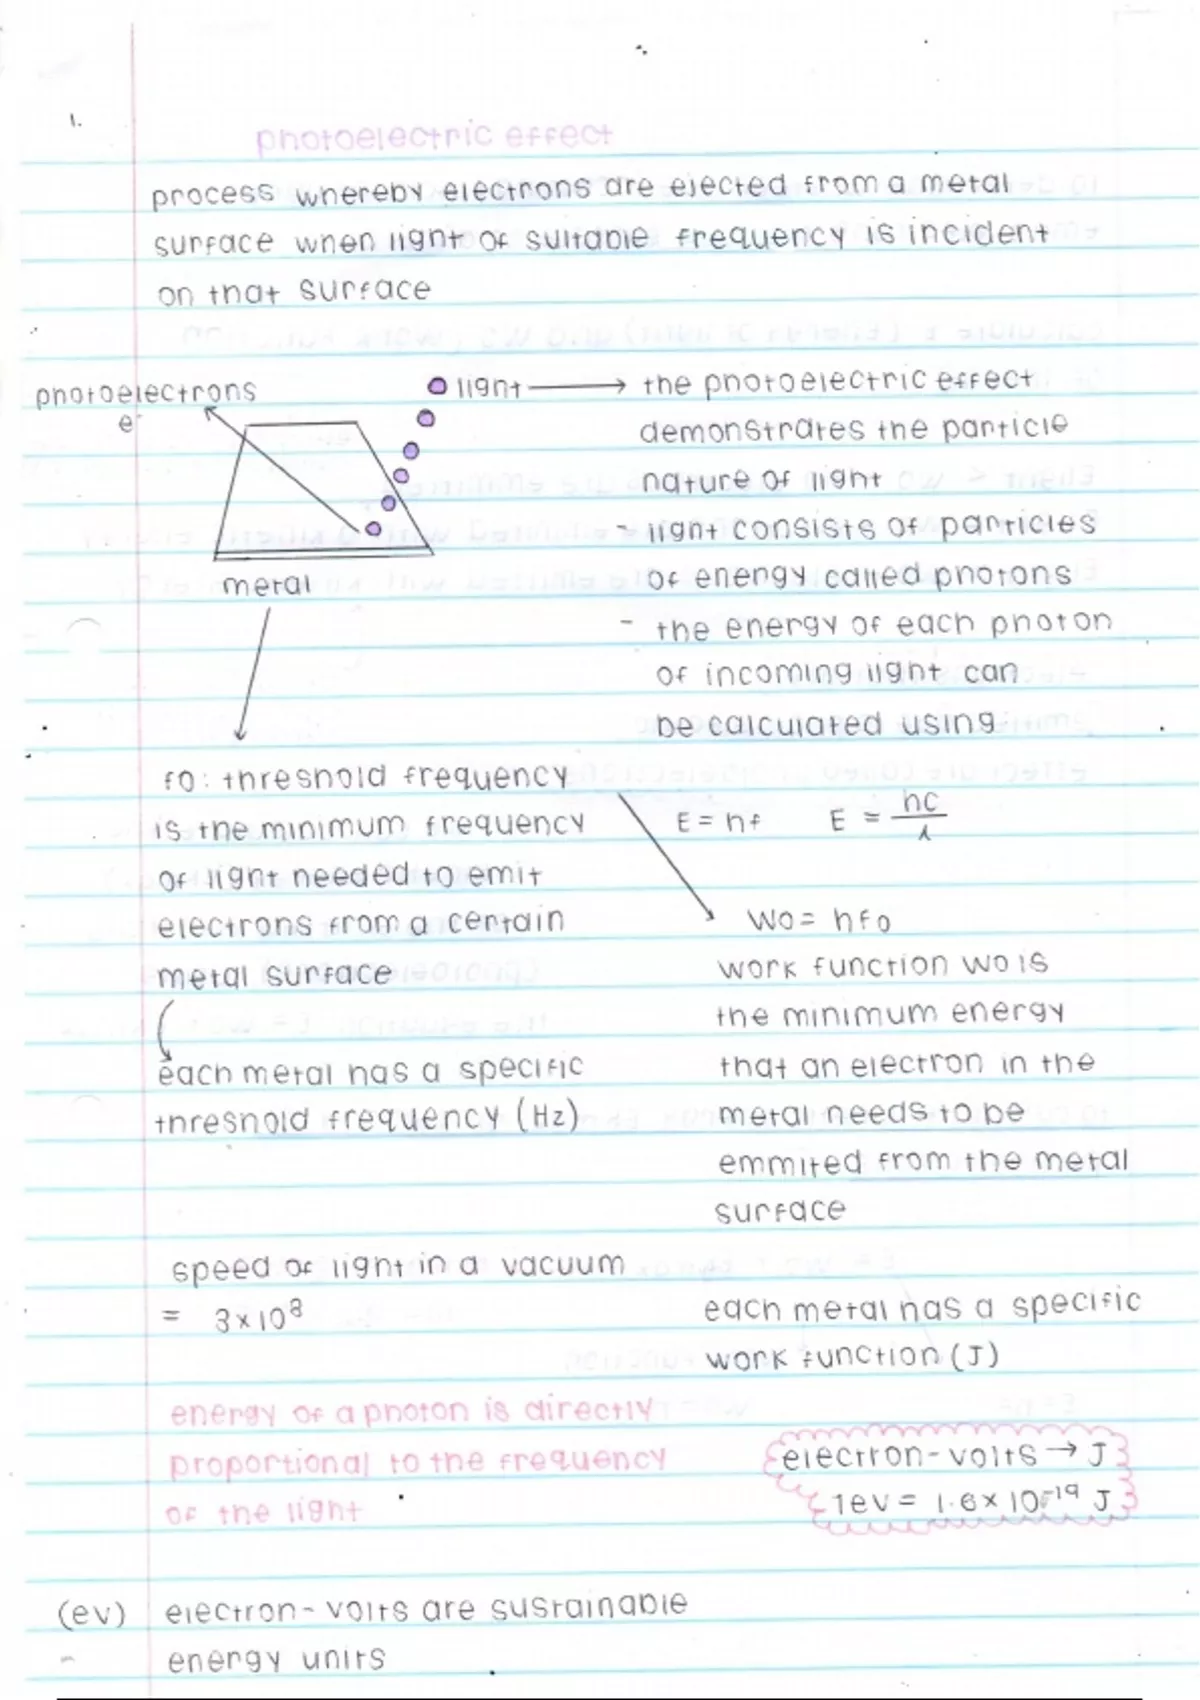 1.
photoelectric effect
process whereby electrons are ejected from a metal
surface when light of suitable frequency is incident
on that surface
photoelectrons
e⁻
metal
light → the photoelectric effect
demonstrates the particle
nature of light
- light consists of particles
of energy called photons
- the energy of each photon
of incoming light can
be calculated using:
E = hf E = hc/λ
fo: threshold frequency
is the minimum frequency
of light needed to emit
electrons from a certain
metal surface
each metal has a specific
threshold frequency (Hz)
Wo = hfo
work function Wo is
the minimum energy
that an electron in the
metal needs to be
emmited from the metal
surface
each metal has a specific
work function (J)
speed of light in a vacuum
= 3 × 10⁸
energy of a photon is directly
proportional to the frequency
of the light
electron-volts → J
1ev = 1.6 × 10⁻¹⁹ J
(ev) electron-volts are sustainable
- energy units